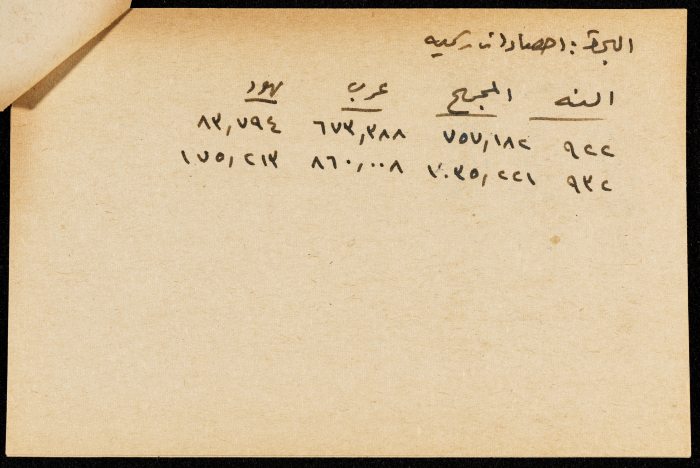 الهجرة : احصاءات رسميه
السنه المجموع عرب يهود
٩٢٢ ٧٥٧,١٨٢ ٦٧٣,٣٨٨ ٨٣,٧٩٤
٩٣٢ ١٠٣٥,٢٢١ ٨٦٠,٠٠٨ ١٧٥,٢١٣